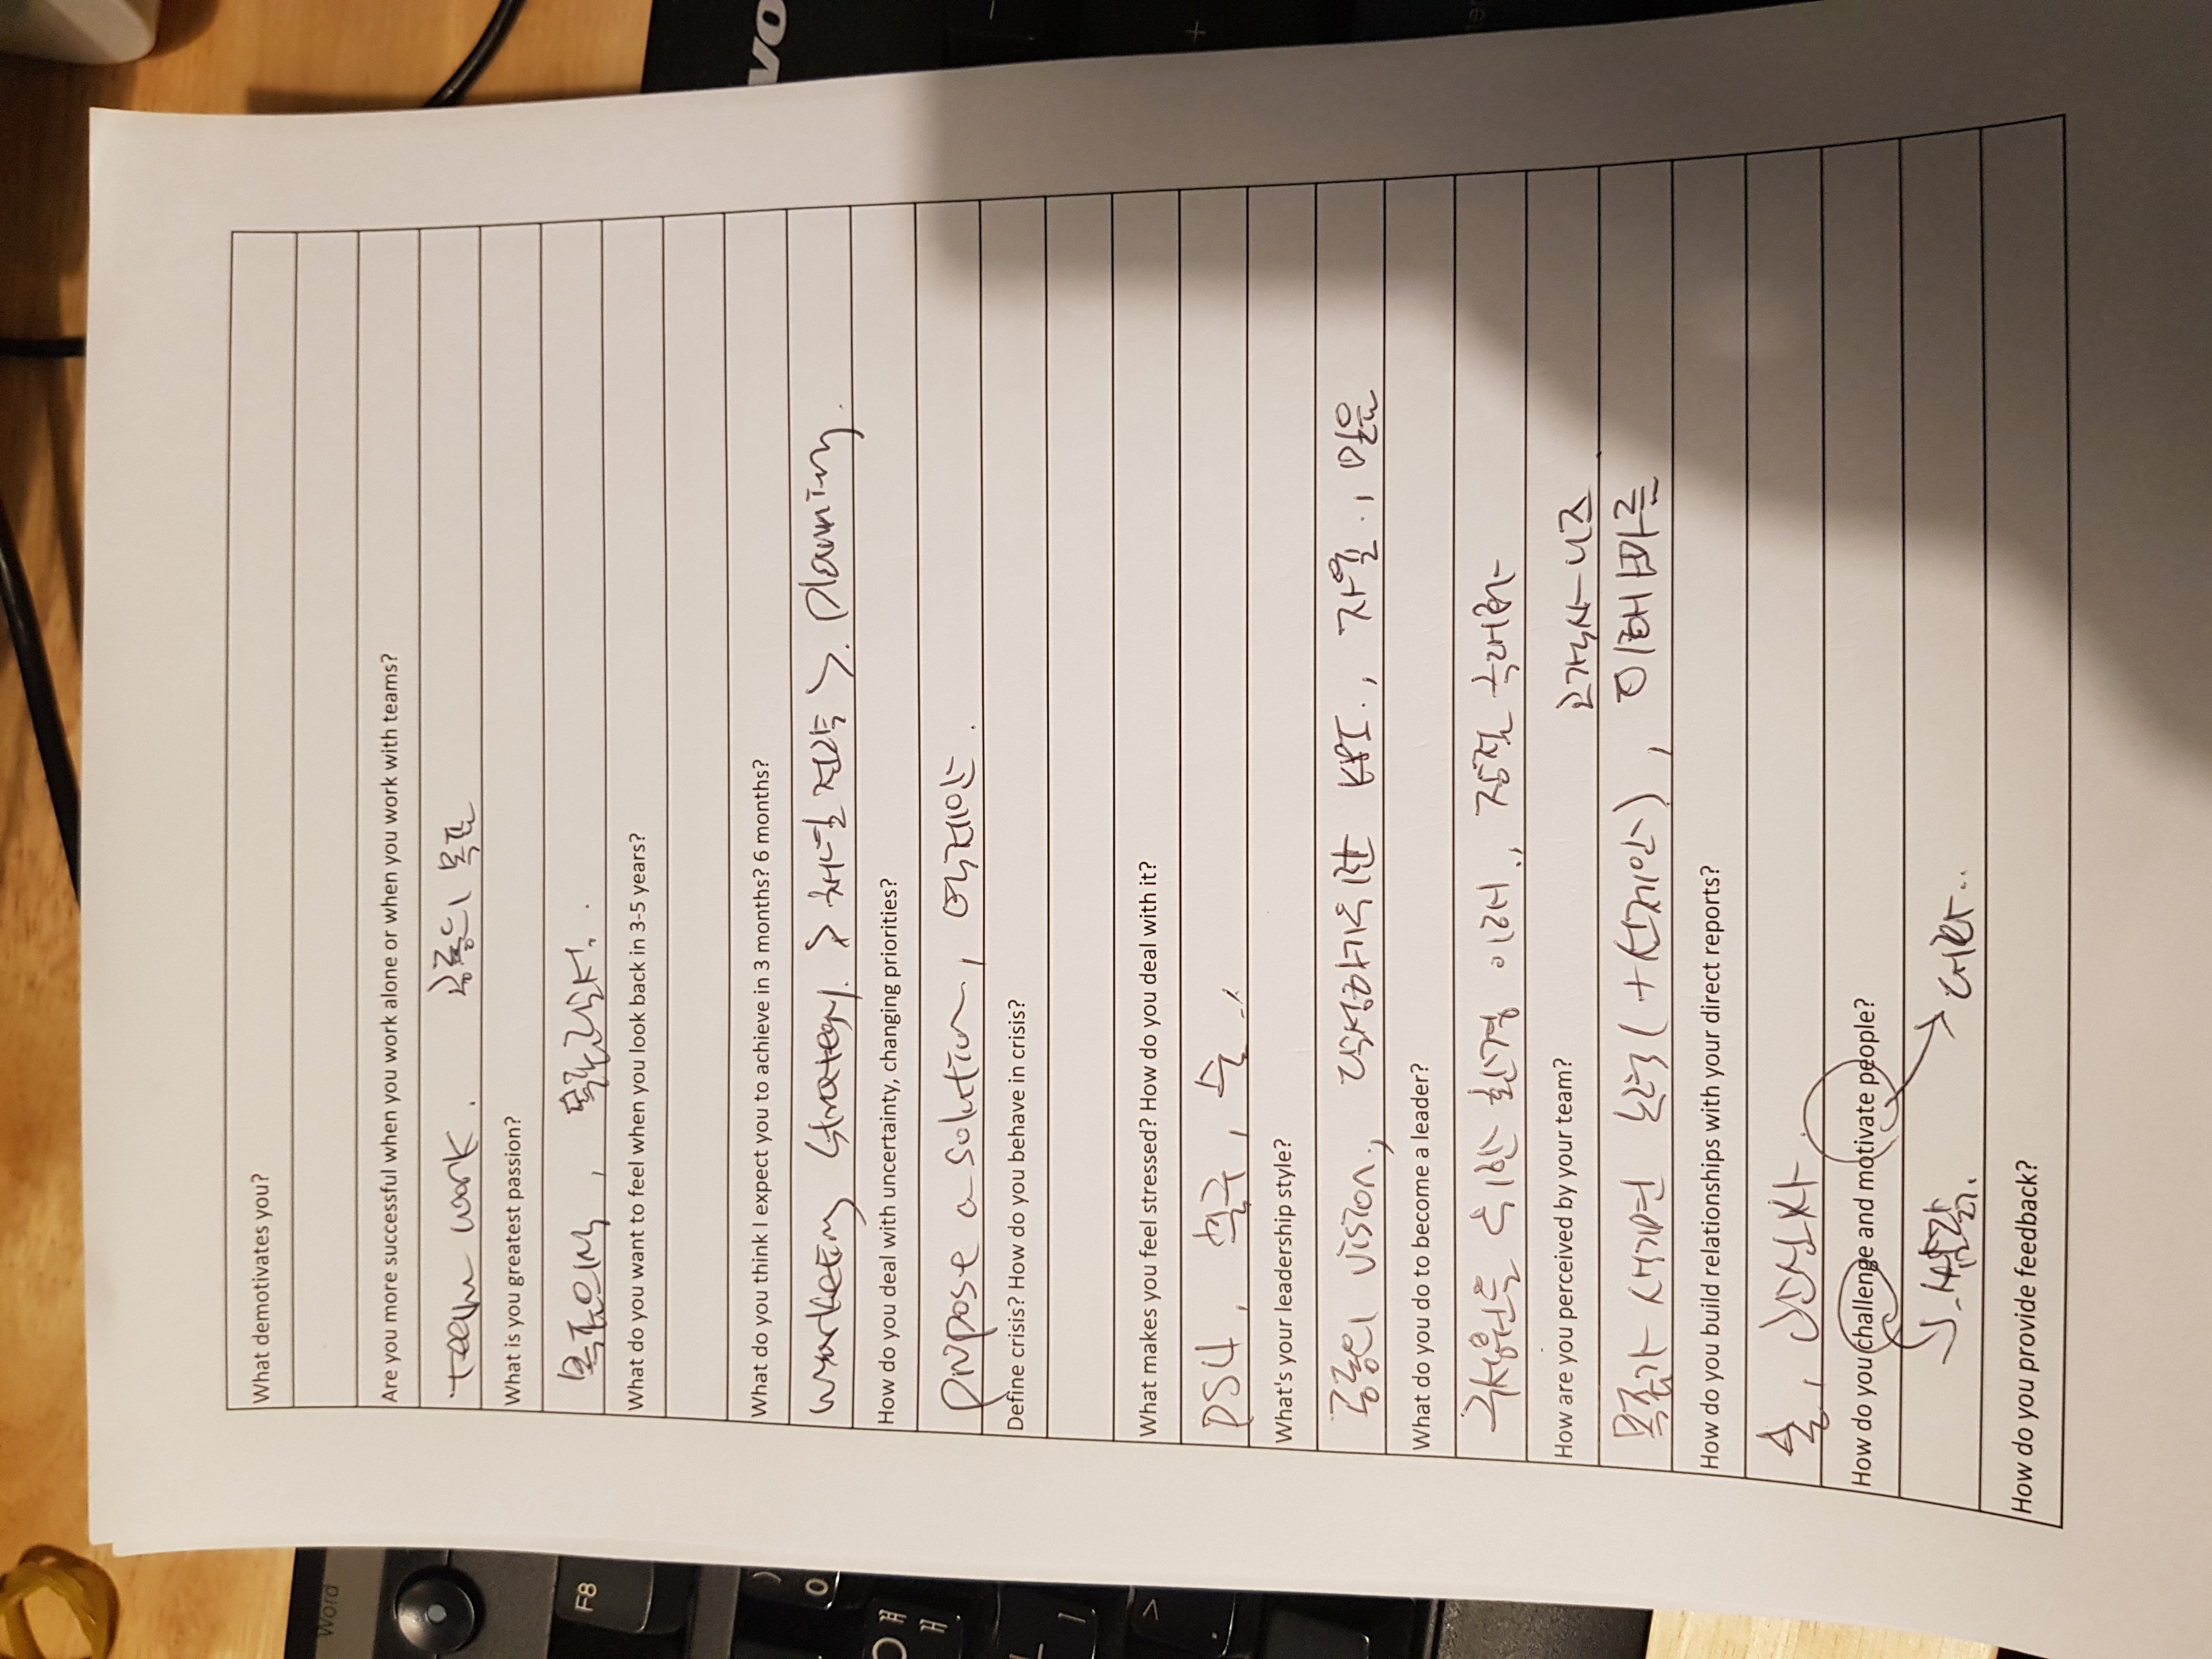 What demotivates you?
Are you more successful when you work alone or when you work with teams?
team work. 공통의 목표
What is you greatest passion?
목표의식,
What do you want to feel when you look back in 3-5 years?
What do you think I expect you to achieve in 3 months? 6 months?
marketing strategy. > 채널 전략 > planning.
How do you deal with uncertainty, changing priorities?
propose a solution, 역제안.
Define crisis? How do you behave in crisis?
What makes you feel stressed? How do you deal with it?
PS4, 축구, 술..
What's your leadership style?
공통의 vision, 달성하기위한 KPI., 자율., 믿음
What do you do to become a leader?
구성원을 위한 환경 이해., 장점 극대화
How are you perceived by your team?
목표가 생기면 노력 (+ 역제안), 이해빠른
How do you build relationships with your direct reports?
술, 
How do you challenge and motivate people?
How do you provide feedback?
VO
Word
F8